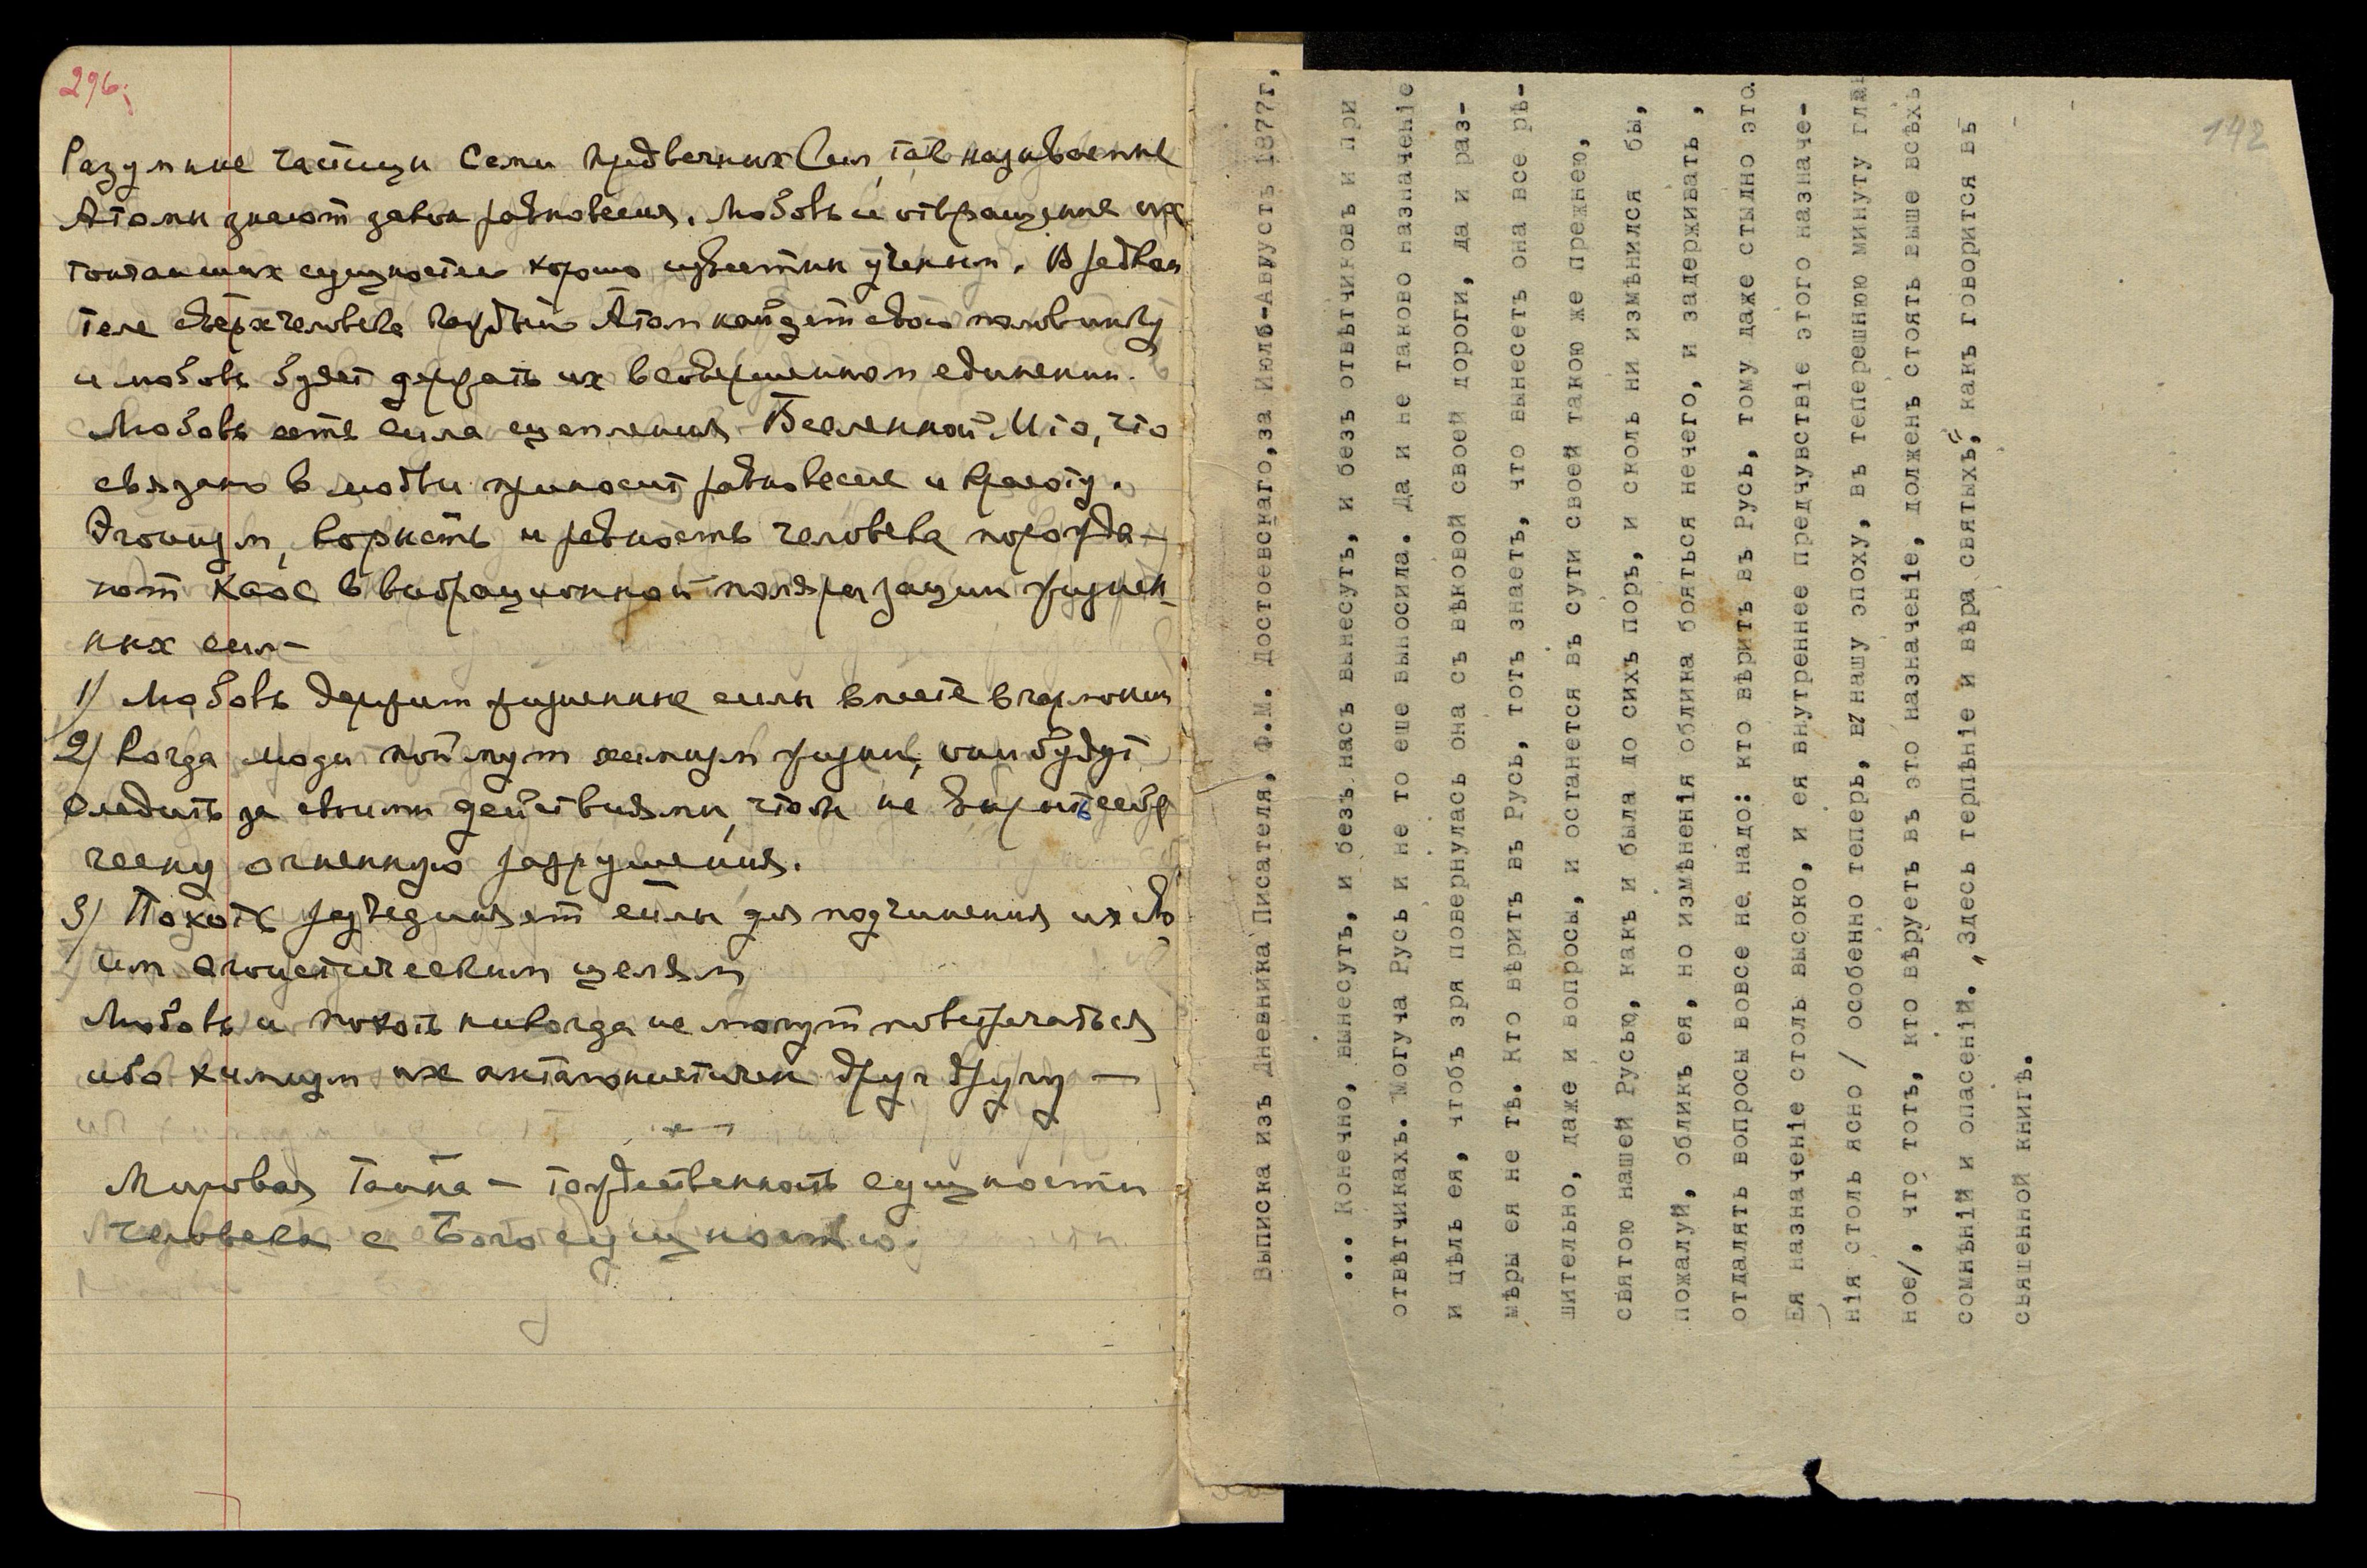 296.
Разумные частицы Семи Предвечных Сил, так называемые
Атомы знают закон равновесия. Любовь и отвращение их
тончайших сущностей хорошо известны ученым. В
теле сверхчеловека каждый Атом найдет свою половинку
и любовь будет держать их в совершенном единении.
Любовь есть сила сцепления Вселенной. И то, что
связано в любви приносит равновесие и красоту.
Эгоизм, корысть и ревность человека порожда-
ют хаос в вибрационной поляризации жизнен-
ных сил —
1) Любовь держит жизненные силы вместе в гармонии
2) Когда люди поймут химизм жизни, они будут
следить за своими действиями, чтобы не
огненную разрушения.
3) Похоть разъединяет силы для подчинения их сво
им эгоистическим целям
Любовь и похоть никогда не могут повстречаться
ибо химизм их антагонистичен друг другу —
Мировая Тайна — тождественность сущности
человека с Богосущностью.
142
Выписка изъ Дневника Писателя, Ф.М. Достоевскаго,за Июль-Августъ 1877г,
... Конечно, вынесутъ, и безъ насъ вынесутъ, и безъ отвѣтчиковъ и при
отвѣтчикахъ. Могуча Русь и не то еще выносила. Да и не таково назначеніе
и цѣль ея, чтобъ зря повернулась она съ вѣковой своей дороги, да и раз-
мѣры ея не тѣ. Кто вѣритъ въ Русь, тотъ знаетъ, что вынесетъ она все рѣ-
шительно, даже и вопросы, и останется въ сути своей такою же прежнею,
святою нашей Русью, какъ и была до сихъ поръ, и сколь ни измѣнился бы,
пожалуй, обликъ ея, но измѣненія облика бояться нечего, и задерживать ,
отдалять вопросы вовсе не надо: кто вѣритъ въ Русь, тому даже стыдно это.
Ея назначеніе столь высоко, и ея внутреннее предчувствіе этого назначе-
нія столь ясно / особенно теперь, въ нашу эпоху, въ теперешнюю минуту глав
ное/, что тотъ, кто вѣруетъ въ это назначеніе, долженъ стоять выше всѣхъ
сомнѣній и опасеній. "Здесь терпѣніе и вѣра святыхъ," какъ говорится въ
священной книгѣ.